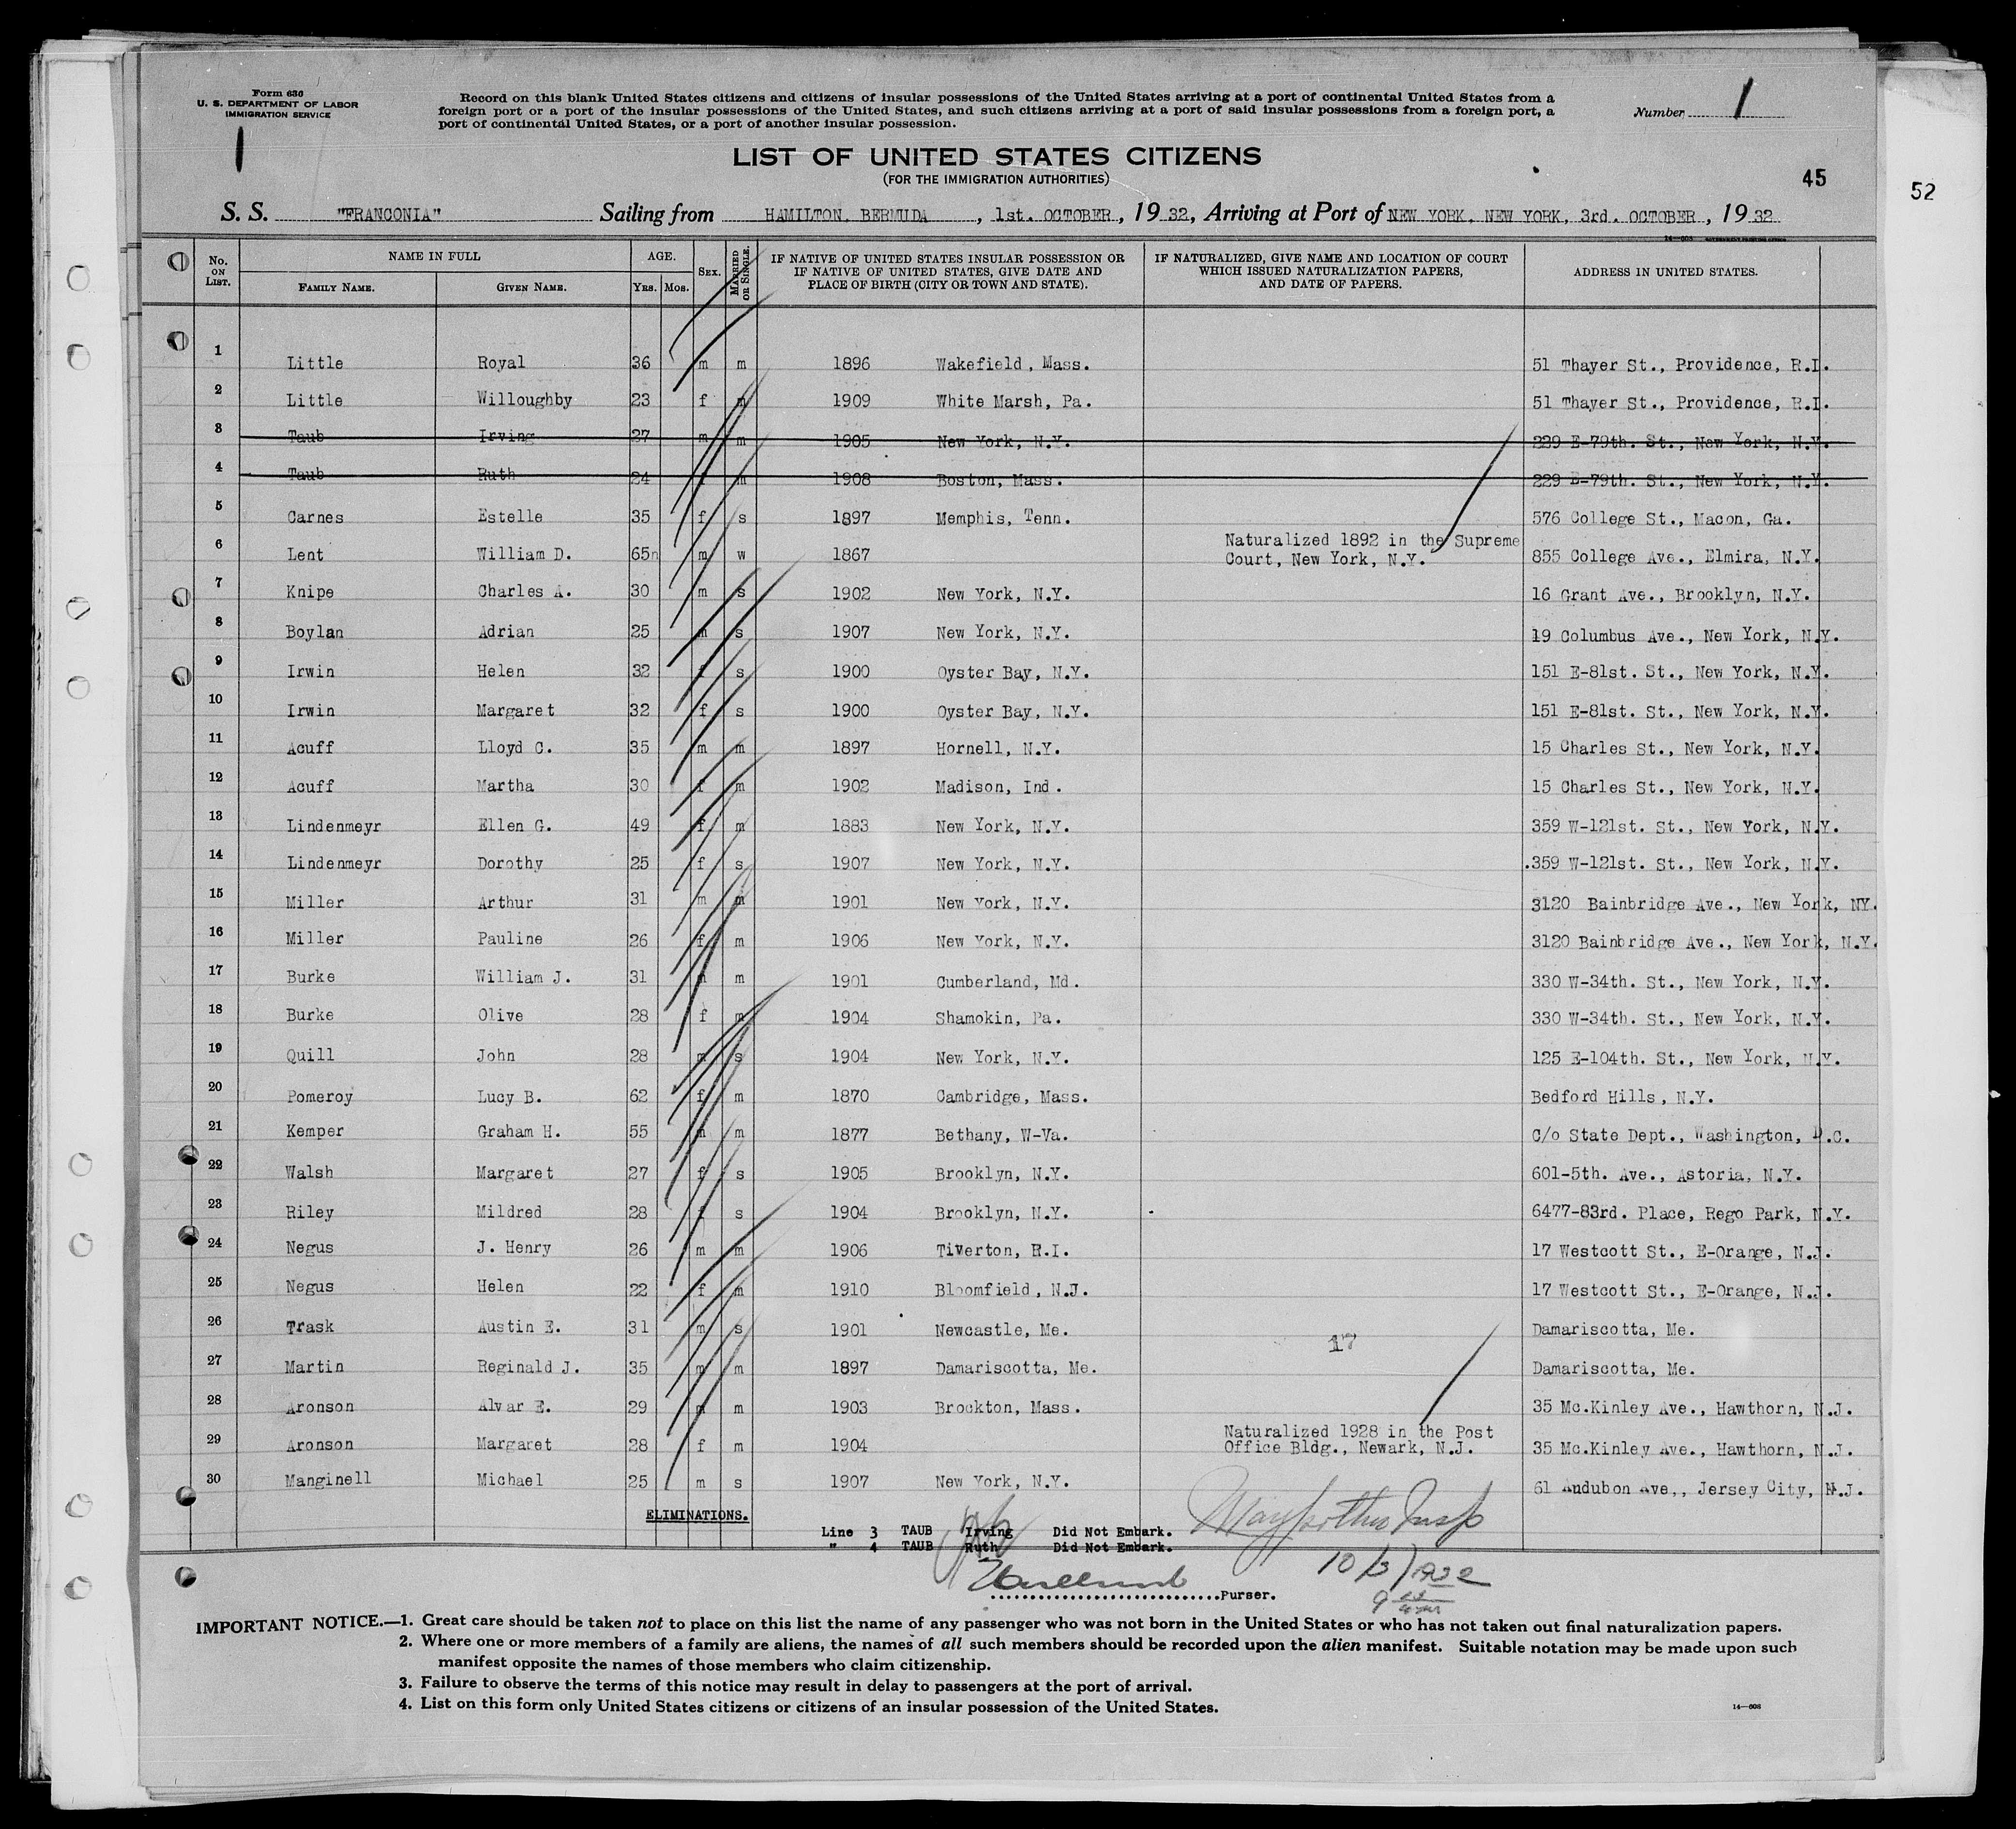 Form 636
U. S. DEPARTMENT OF LABOR
IMMIGRATION SERVICE
1
Record on this blank United States citizens and citizens of insular possessions of the United States arriving at a port of continental United States from a
foreign port or a port of the insular possessions of the United States, and such citizens arriving at a port of said insular possessions from a foreign port, a
port of continental United States, or a port of another insular possession.
Number 1
LIST OF UNITED STATES CITIZENS
(FOR THE IMMIGRATION AUTHORITIES)
45
52
S. S. "FRANCONIA" Sailing from HAMILTON, BERMUDA, 1st. OCTOBER, 1932, Arriving at Port of NEW YORK, NEW YORK, 3rd. OCTOBER, 1932
14—608 GOVERNMENT PRINTING OFFICE
No. ON LIST. NAME IN FULL FAMILY NAME. GIVEN NAME. AGE. YRS. MOS. SEX. MARRIED OR SINGLE. IF NATIVE OF UNITED STATES INSULAR POSSESSION OR IF NATIVE OF UNITED STATES, GIVE DATE AND PLACE OF BIRTH (CITY OR TOWN AND STATE). IF NATURALIZED, GIVE NAME AND LOCATION OF COURT WHICH ISSUED NATURALIZATION PAPERS, AND DATE OF PAPERS. ADDRESS IN UNITED STATES.
1 Little Royal 36 m m 1896 Wakefield, Mass. 51 Thayer St., Providence, R.I.
2 Little Willoughby 23 f m 1909 White Marsh, Pa. 51 Thayer St., Providence, R.I.
3 Taub Irving 27 m m 1905 New York, N.Y. 229 E-79th. St., New York, N.Y.
4 Taub Ruth 24 f m 1908 Boston, Mass. 229 E-79th. St., New York, N.Y.
5 Carnes Estelle 35 f s 1897 Memphis, Tenn. 576 College St., Macon, Ga.
6 Lent William D. 65 m w 1867 Naturalized 1892 in the Supreme Court, New York, N.Y. 855 College Ave., Elmira, N.Y.
7 Knipe Charles A. 30 m s 1902 New York, N.Y. 16 Grant Ave., Brooklyn, N.Y.
8 Boylan Adrian 25 m s 1907 New York, N.Y. 19 Columbus Ave., New York, N.Y.
9 Irwin Helen 32 f s 1900 Oyster Bay, N.Y. 151 E-81st. St., New York, N.Y.
10 Irwin Margaret 32 f s 1900 Oyster Bay, N.Y. 151 E-81st. St., New York, N.Y.
11 Acuff Lloyd C. 35 m m 1897 Hornell, N.Y. 15 Charles St., New York, N.Y.
12 Acuff Martha 30 f m 1902 Madison, Ind. 15 Charles St., New York, N.Y.
13 Lindenmeyr Ellen G. 49 f m 1883 New York, N.Y. 359 W-121st. St., New York, N.Y.
14 Lindenmeyr Dorothy 25 f s 1907 New York, N.Y. .359 W-121st. St., New York, N.Y.
15 Miller Arthur 31 m m 1901 New York, N.Y. 3120 Bainbridge Ave., New York, NY.
16 Miller Pauline 26 f m 1906 New York, N.Y. 3120 Bainbridge Ave., New York, N.Y.
17 Burke William J. 31 m m 1901 Cumberland, Md. 330 W-34th. St., New York, N.Y.
18 Burke Olive 28 f m 1904 Shamokin, Pa. 330 W-34th. St., New York, N.Y.
19 Quill John 28 m s 1904 New York, N.Y. 125 E-104th. St., New York, N.Y.
20 Pomeroy Lucy B. 62 f m 1870 Cambridge, Mass. Bedford Hills, N.Y.
21 Kemper Graham H. 55 m m 1877 Bethany, W-Va. C/o State Dept., Washington, D.C.
22 Walsh Margaret 27 f s 1905 Brooklyn, N.Y. 601-5th. Ave., Astoria, N.Y.
23 Riley Mildred 28 f s 1904 Brooklyn, N.Y. 6477-83rd. Place, Rego Park, N.Y.
24 Negus J. Henry 26 m m 1906 Tiverton, R.I. 17 Westcott St., E-Orange, N.J.
25 Negus Helen 22 f m 1910 Bloomfield, N.J. 17 Westcott St., E-Orange, N.J.
26 Trask Austin E. 31 m s 1901 Newcastle, Me. Damariscotta, Me.
17
27 Martin Reginald J. 35 m m 1897 Damariscotta, Me. Damariscotta, Me.
28 Aronson Alvar E. 29 m m 1903 Brockton, Mass. 35 Mc.Kinley Ave., Hawthorn, N.J.
29 Aronson Margaret 28 f m 1904 Naturalized 1928 in the Post Office Bldg., Newark, N.J. 35 Mc.Kinley Ave., Hawthorn, N.J.
30 Manginell Michael 25 m s 1907 New York, N.Y. 61 Audubon Ave,, Jersey City, N.J.
ELIMINATIONS.
Line 3 TAUB Irving Did Not Embark.
" 4 TAUB Ruth Did Not Embark.
10/3/1932
Purser.
IMPORTANT NOTICE.—1. Great care should be taken not to place on this list the name of any passenger who was not born in the United States or who has not taken out final naturalization papers.
2. Where one or more members of a family are aliens, the names of all such members should be recorded upon the alien manifest. Suitable notation may be made upon such
manifest opposite the names of those members who claim citizenship.
3. Failure to observe the terms of this notice may result in delay to passengers at the port of arrival.
4. List on this form only United States citizens or citizens of an insular possession of the United States.
14—608